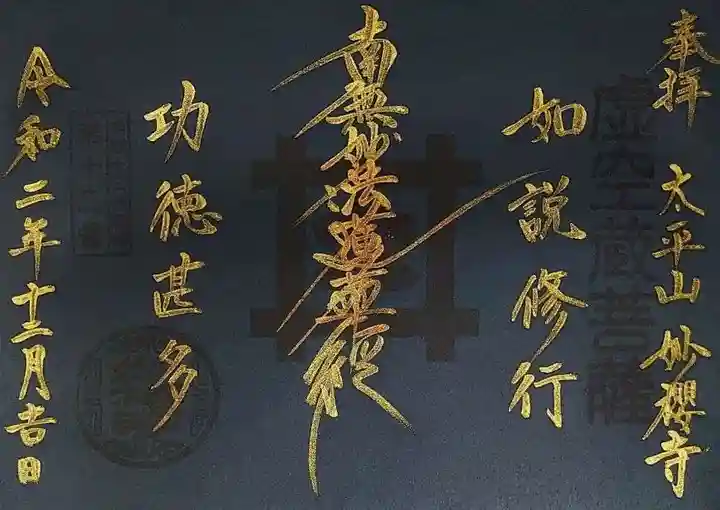 奉拝 太平山 妙櫻寺
虚空蔵菩薩
如説修行
南無妙法蓮華経
功徳甚多
令和二年十二月吉日